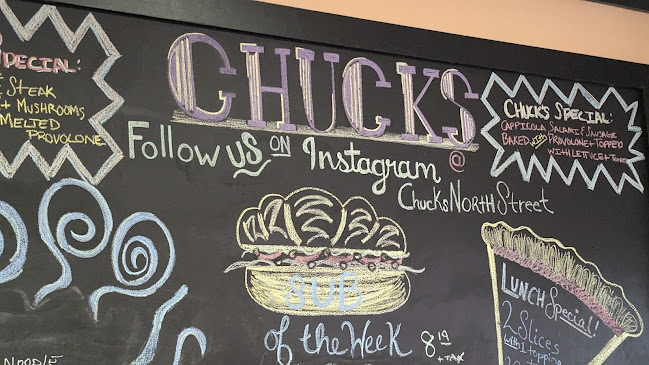 SPECIAL:
STEAK
+ MUSHROOMS
MELTED
PROVOLONE
CHUCKS
Follow US ON Instagram @
ChucksNORTHStreet
CHUCK'S SPECIAL:
CAPPICOLA SALAMI & SAUSAGE
BAKED WITH PROVOLONE + TOPPED
WITH LETTICE +
SUB
of the Week 8 19
+ TAX
LUNCH Special!
2 Slices
with 1 topping
NOODLE